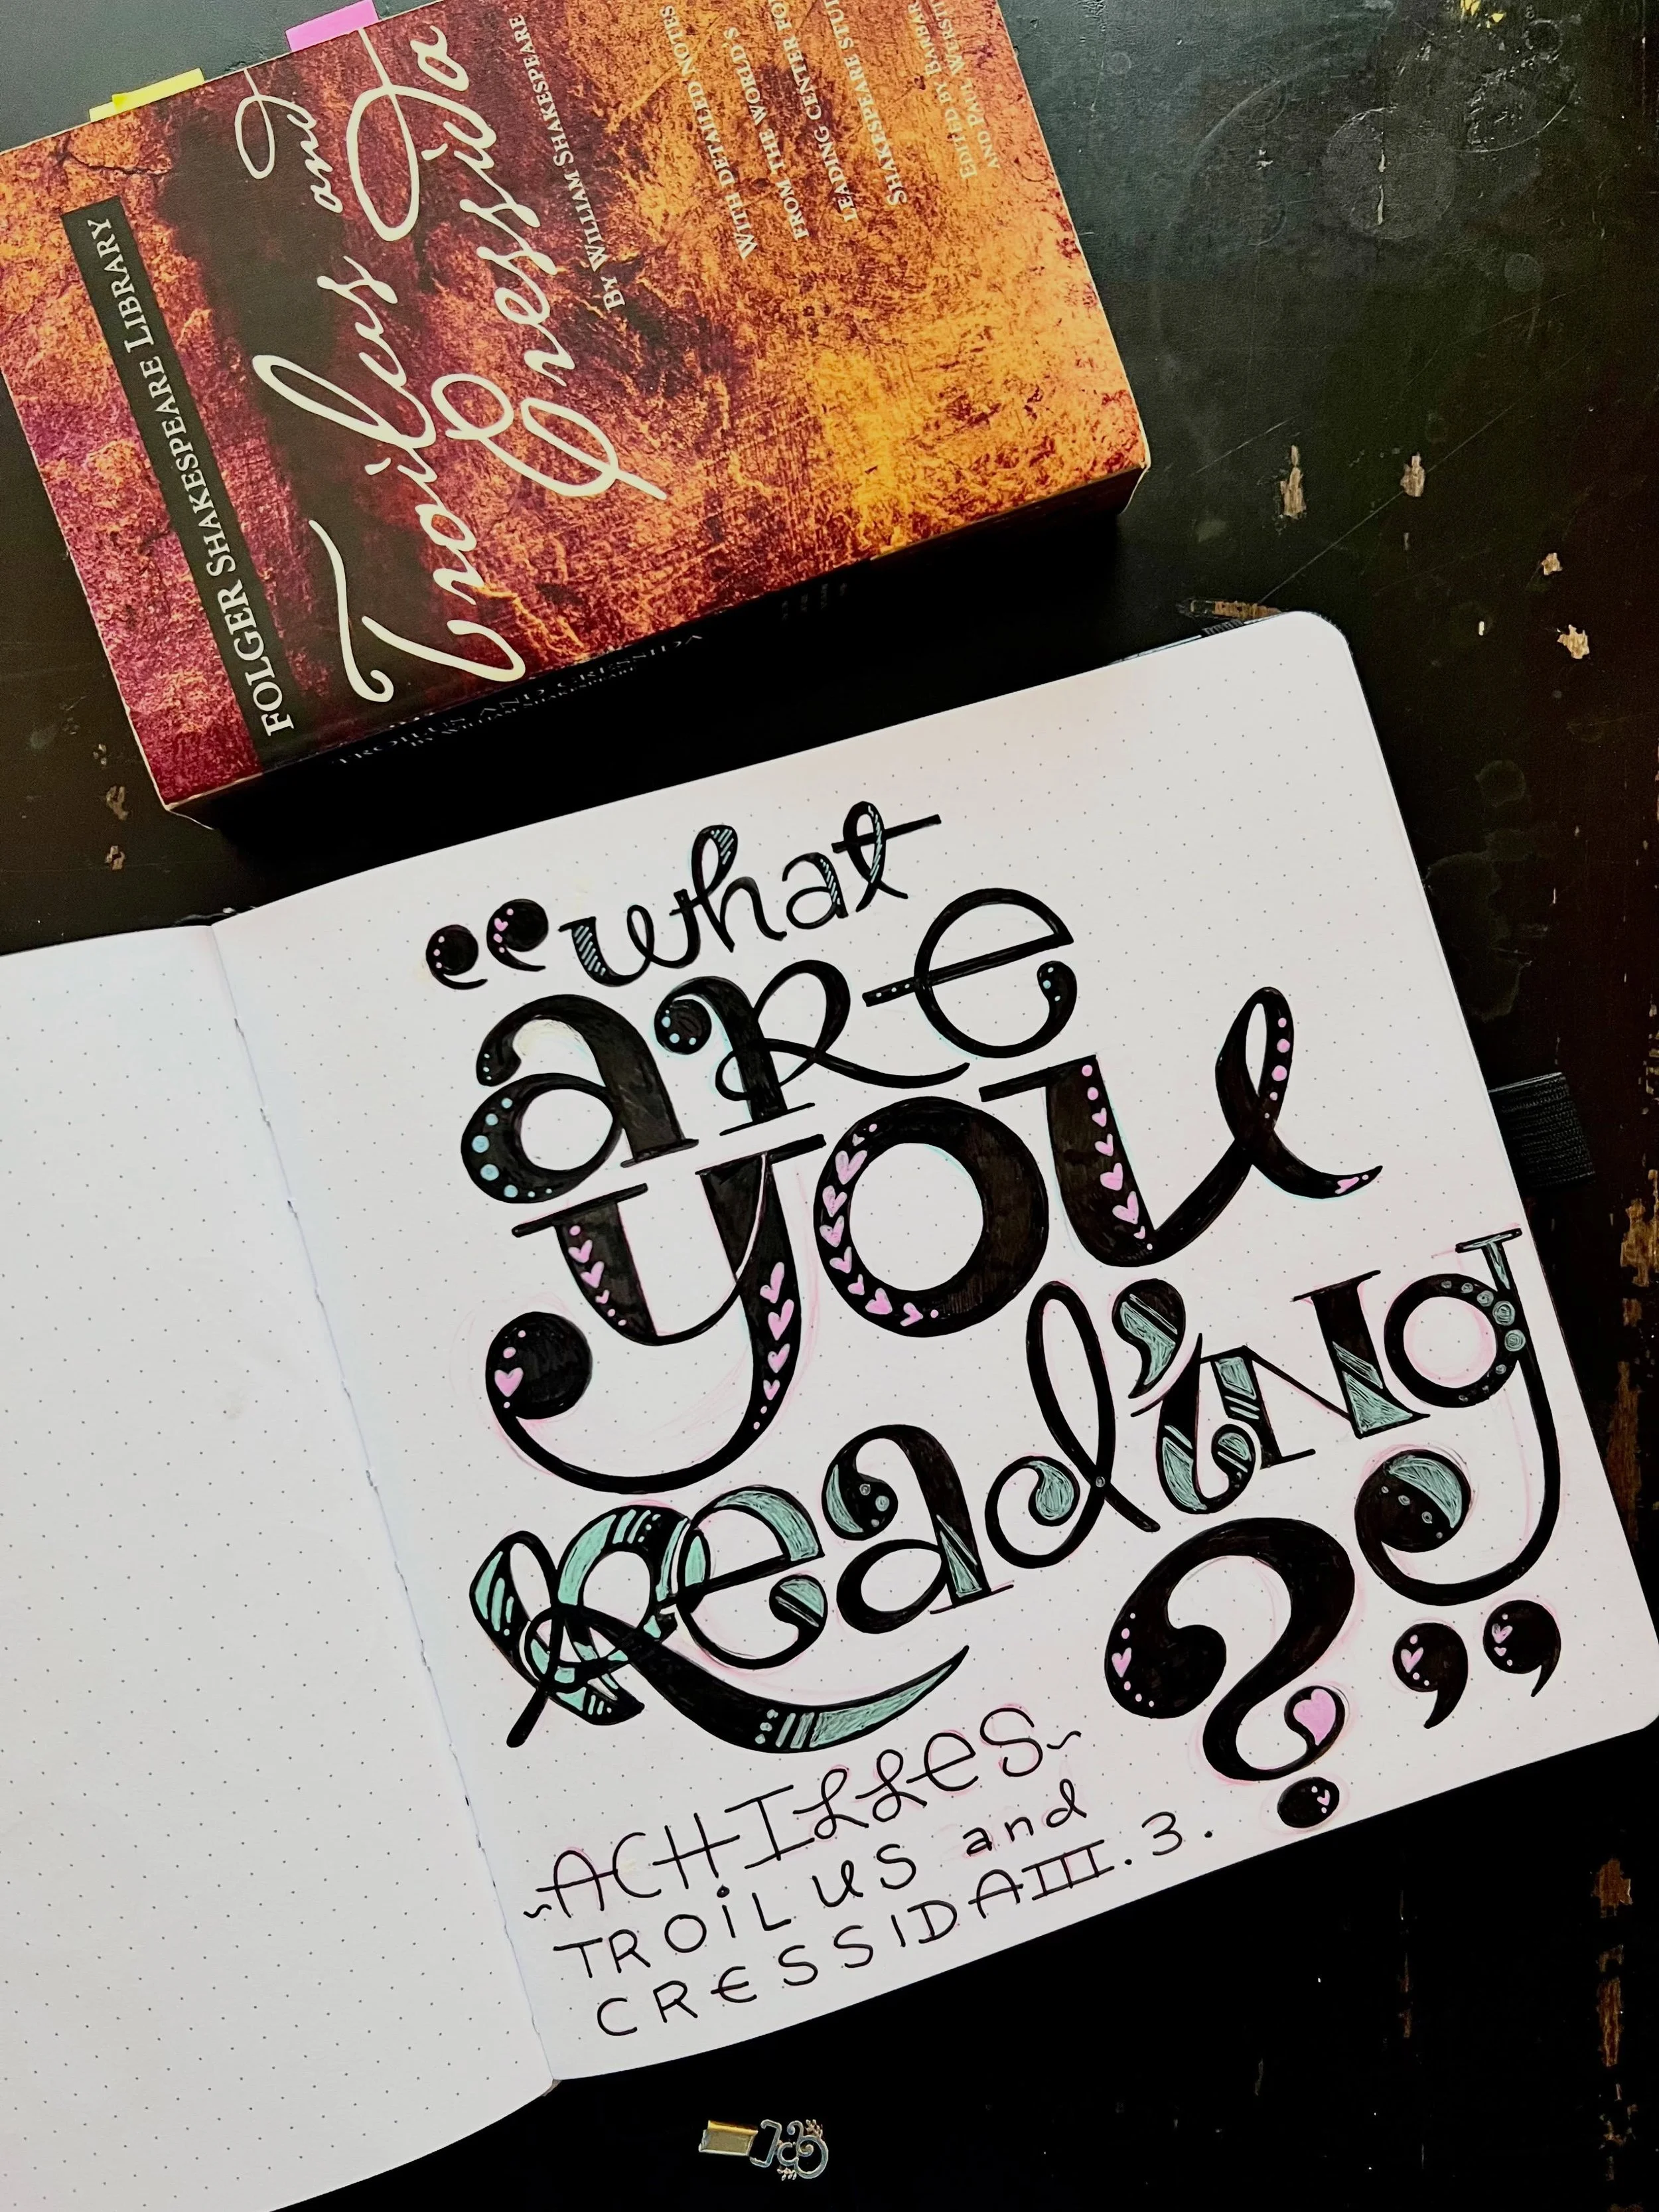 FOLGER SHAKESPEARE LIBRARY
Troilus and
Cressida
BY WILLIAM SHAKESPEARE
WITH DETAILED NOTES
FROM THE WORLD'S
LEADING CENTER FO
SHAKESPEARE STU
EDITED BY BARBAR
AND PAUL WERSTI
TROILUS AND CRESSIDA
BY WILLIAM SHAKESPEARE
“what
are
you
Read'ing
?”
~ACHILLES~
TROiLUS and
CRESSIDA III.3.